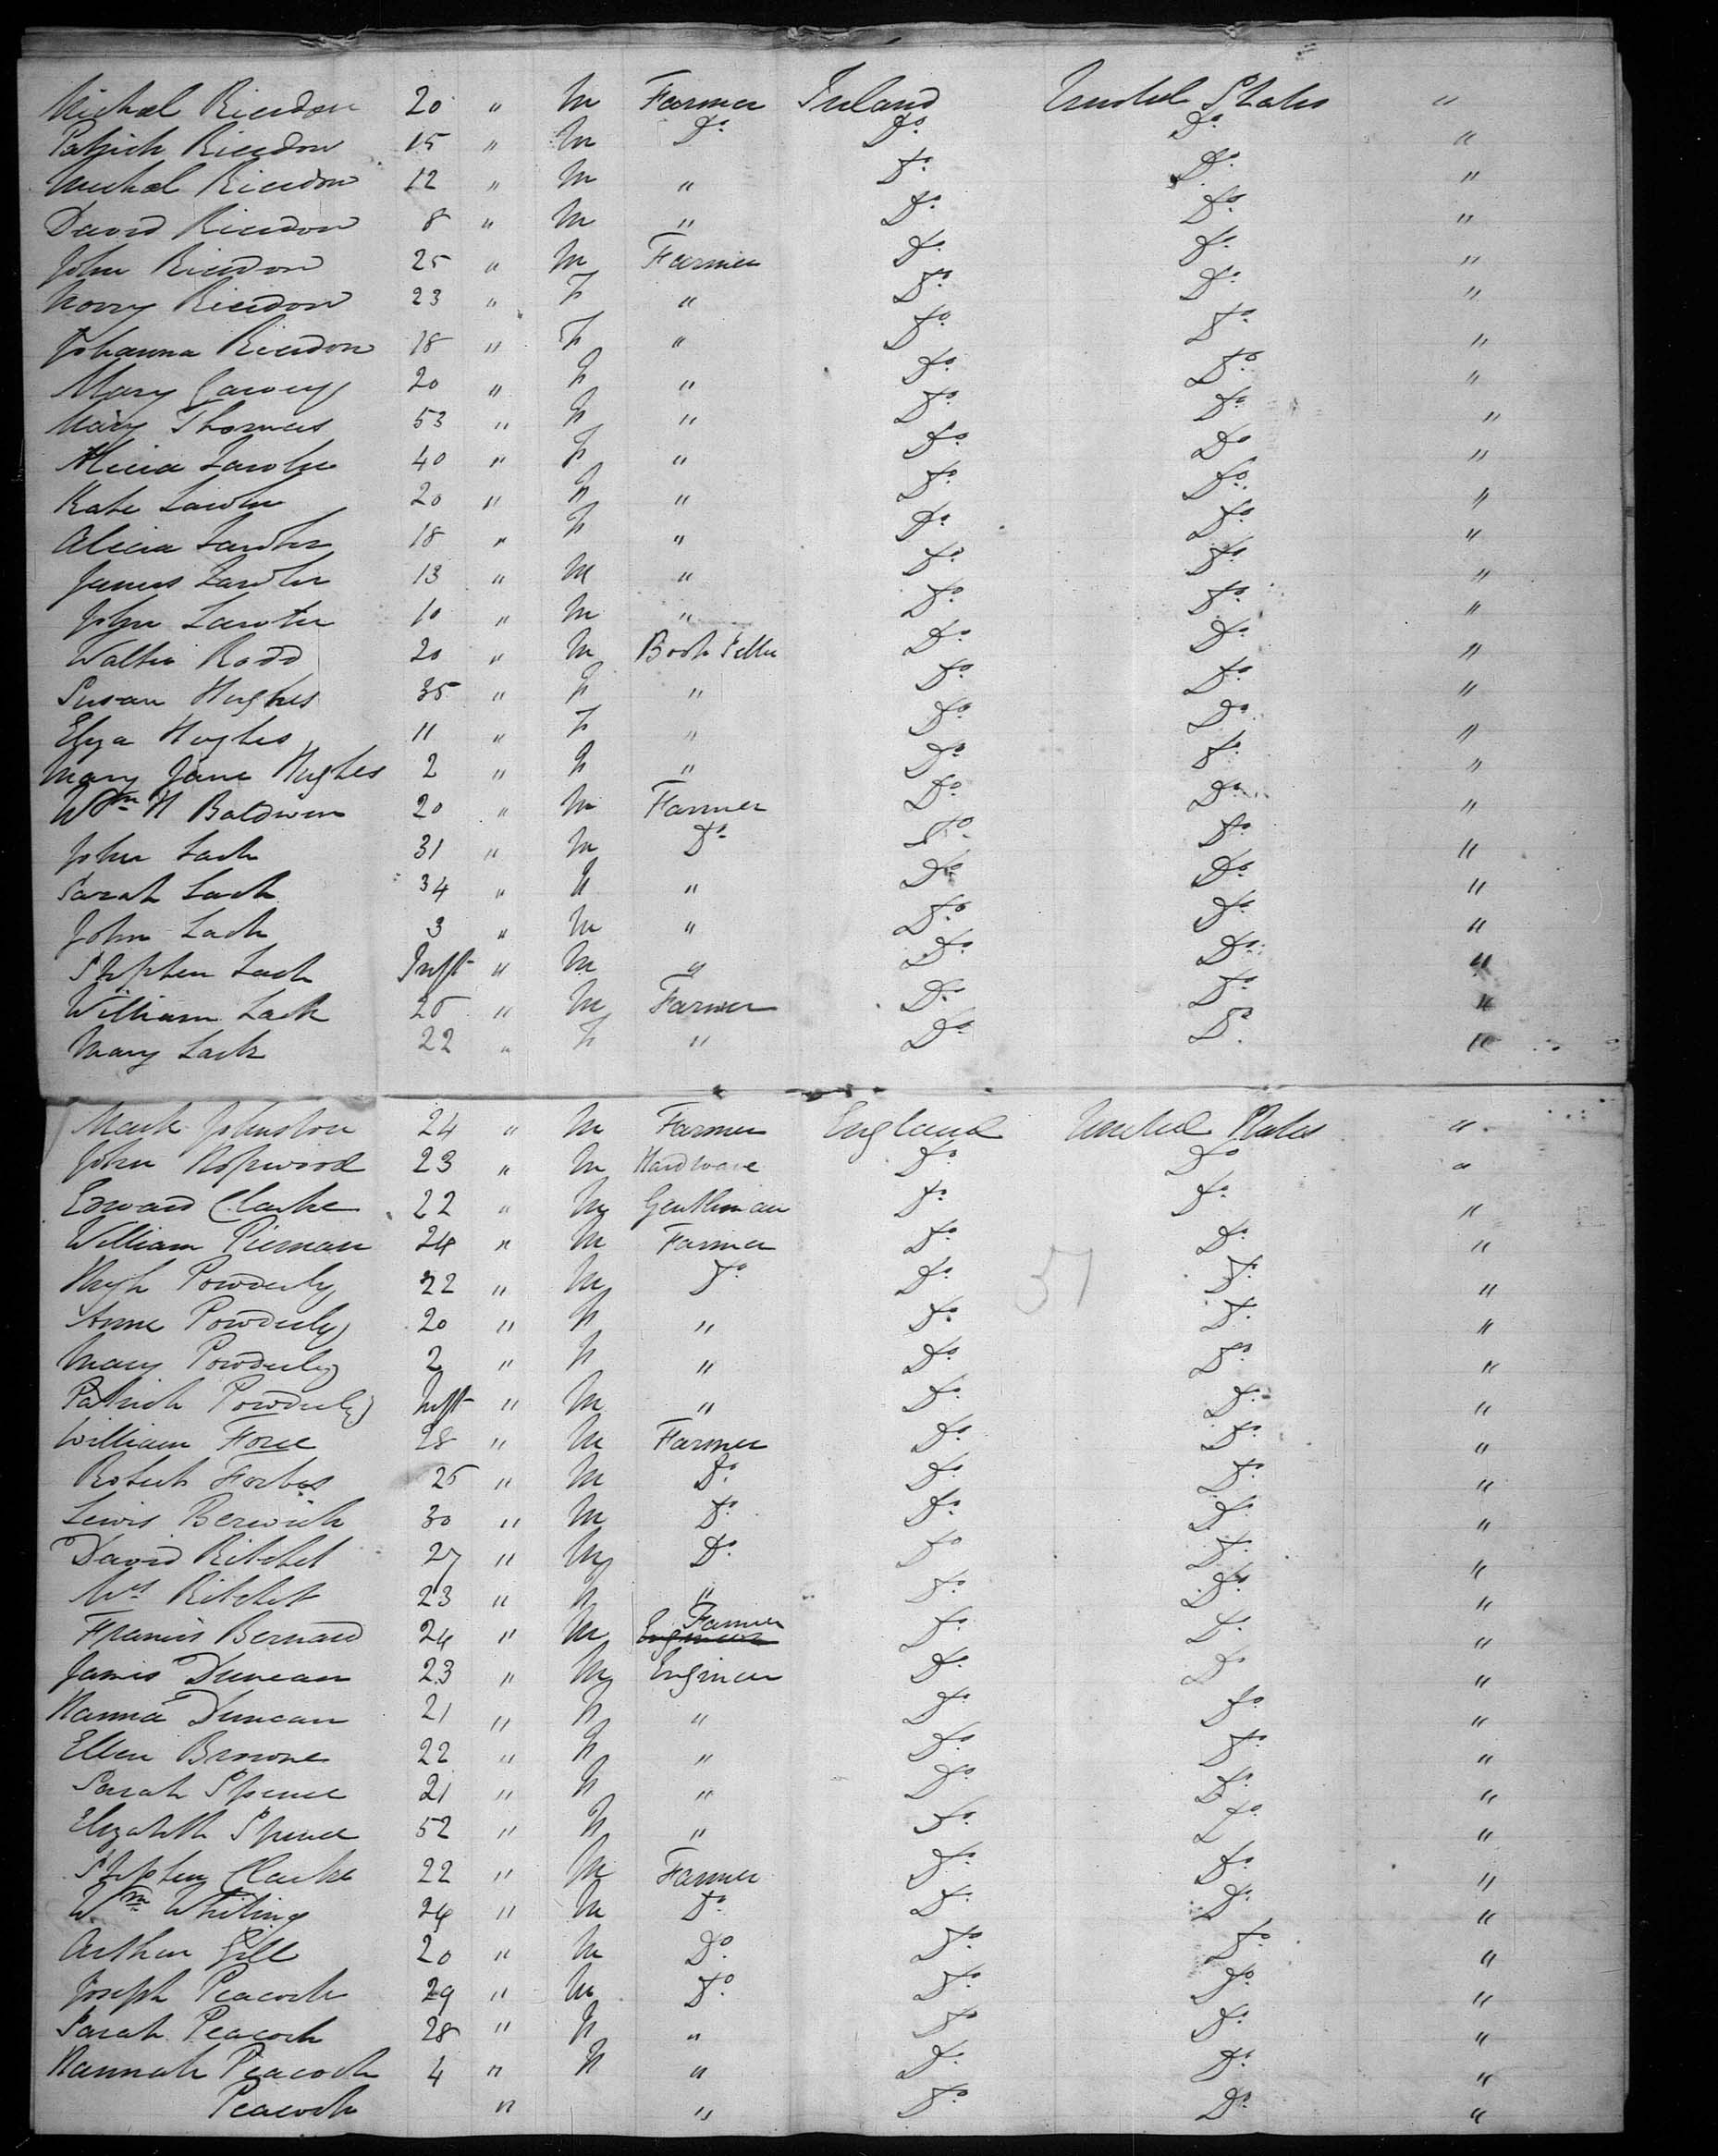 Michael Riordon 20 " M Farmer Ireland United States "
Patrick Riordon 15 " M Do Do Do "
Michael Riordon 12 " M " Do Do "
David Riordon 8 " M " Do Do "
John Riordon 25 " M Farmer Do Do "
Norry Riordon 23 " F " Do Do "
Johanna Riordon 18 " F " Do Do "
Mary Garvey 20 " F " Do Do "
Mary Thomas 53 " F " Do Do "
Alicia Lawler 40 " F " Do Do "
Kate Lawler 20 " F " Do Do "
Alicia Lawler 18 " F " Do Do "
James Lawler 13 " M " Do Do "
John Lawler 10 " M " Do Do "
Walter Rodd 20 " M Book Seller Do Do "
Susan Hughes 35 " F " Do Do "
Eliza Hughes 11 " F " Do Do "
Mary Jane Hughes 2 " F " Do Do "
Wm H Baldwin 20 " M Farmer Do Do "
John Lack 31 " M Do Do Do "
Sarah Lack 34 " F " Do Do "
John Lack 3 " M " Do Do "
Stephen Lack Inft " M " Do Do "
William Lack 25 " M Farmer Do Do "
Mary Lack 22 " F " Do Do "
Mark Johnston 24 " M Farmer England United States "
John Hopwood 23 " M Hardware Do Do "
Edward Clarke 22 " M Gentleman Do Do "
William Pierman 24 " M Farmer Do Do "
Hugh Powderly 22 " M Do Do Do "
57
Anne Powderly 20 " F " Do Do "
Mary Powderly 2 " F " Do Do "
Patrick Powderly Inft " M " Do Do "
William Force 28 " M Farmer Do Do "
Robert Forbes 25 " M Do Do Do "
Lewis Berwick 30 " M Do Do Do "
David Ritchet 27 " M Do Do Do "
Mrs Ritchet 23 " F " Do Do "
Francis Bernard 24 " M Engineer Farmer Do Do "
James Duncan 23 " M Engineer Do Do "
Hanna Duncan 21 " F " Do Do "
Ellen Browne 22 " F " Do Do "
Sarah Spence 21 " F " Do Do "
Elizabeth Spence 52 " F " Do Do "
Stephen Clarke 22 " M Farmer Do Do "
Wm Whiting 24 " M Do Do Do "
Arthur Gill 20 " M Do Do Do "
Joseph Peacock 29 " M Do Do Do "
Sarah Peacock 28 " F " Do Do "
Hannah Peacock 4 " F " Do Do "
Peacock " " Do Do "